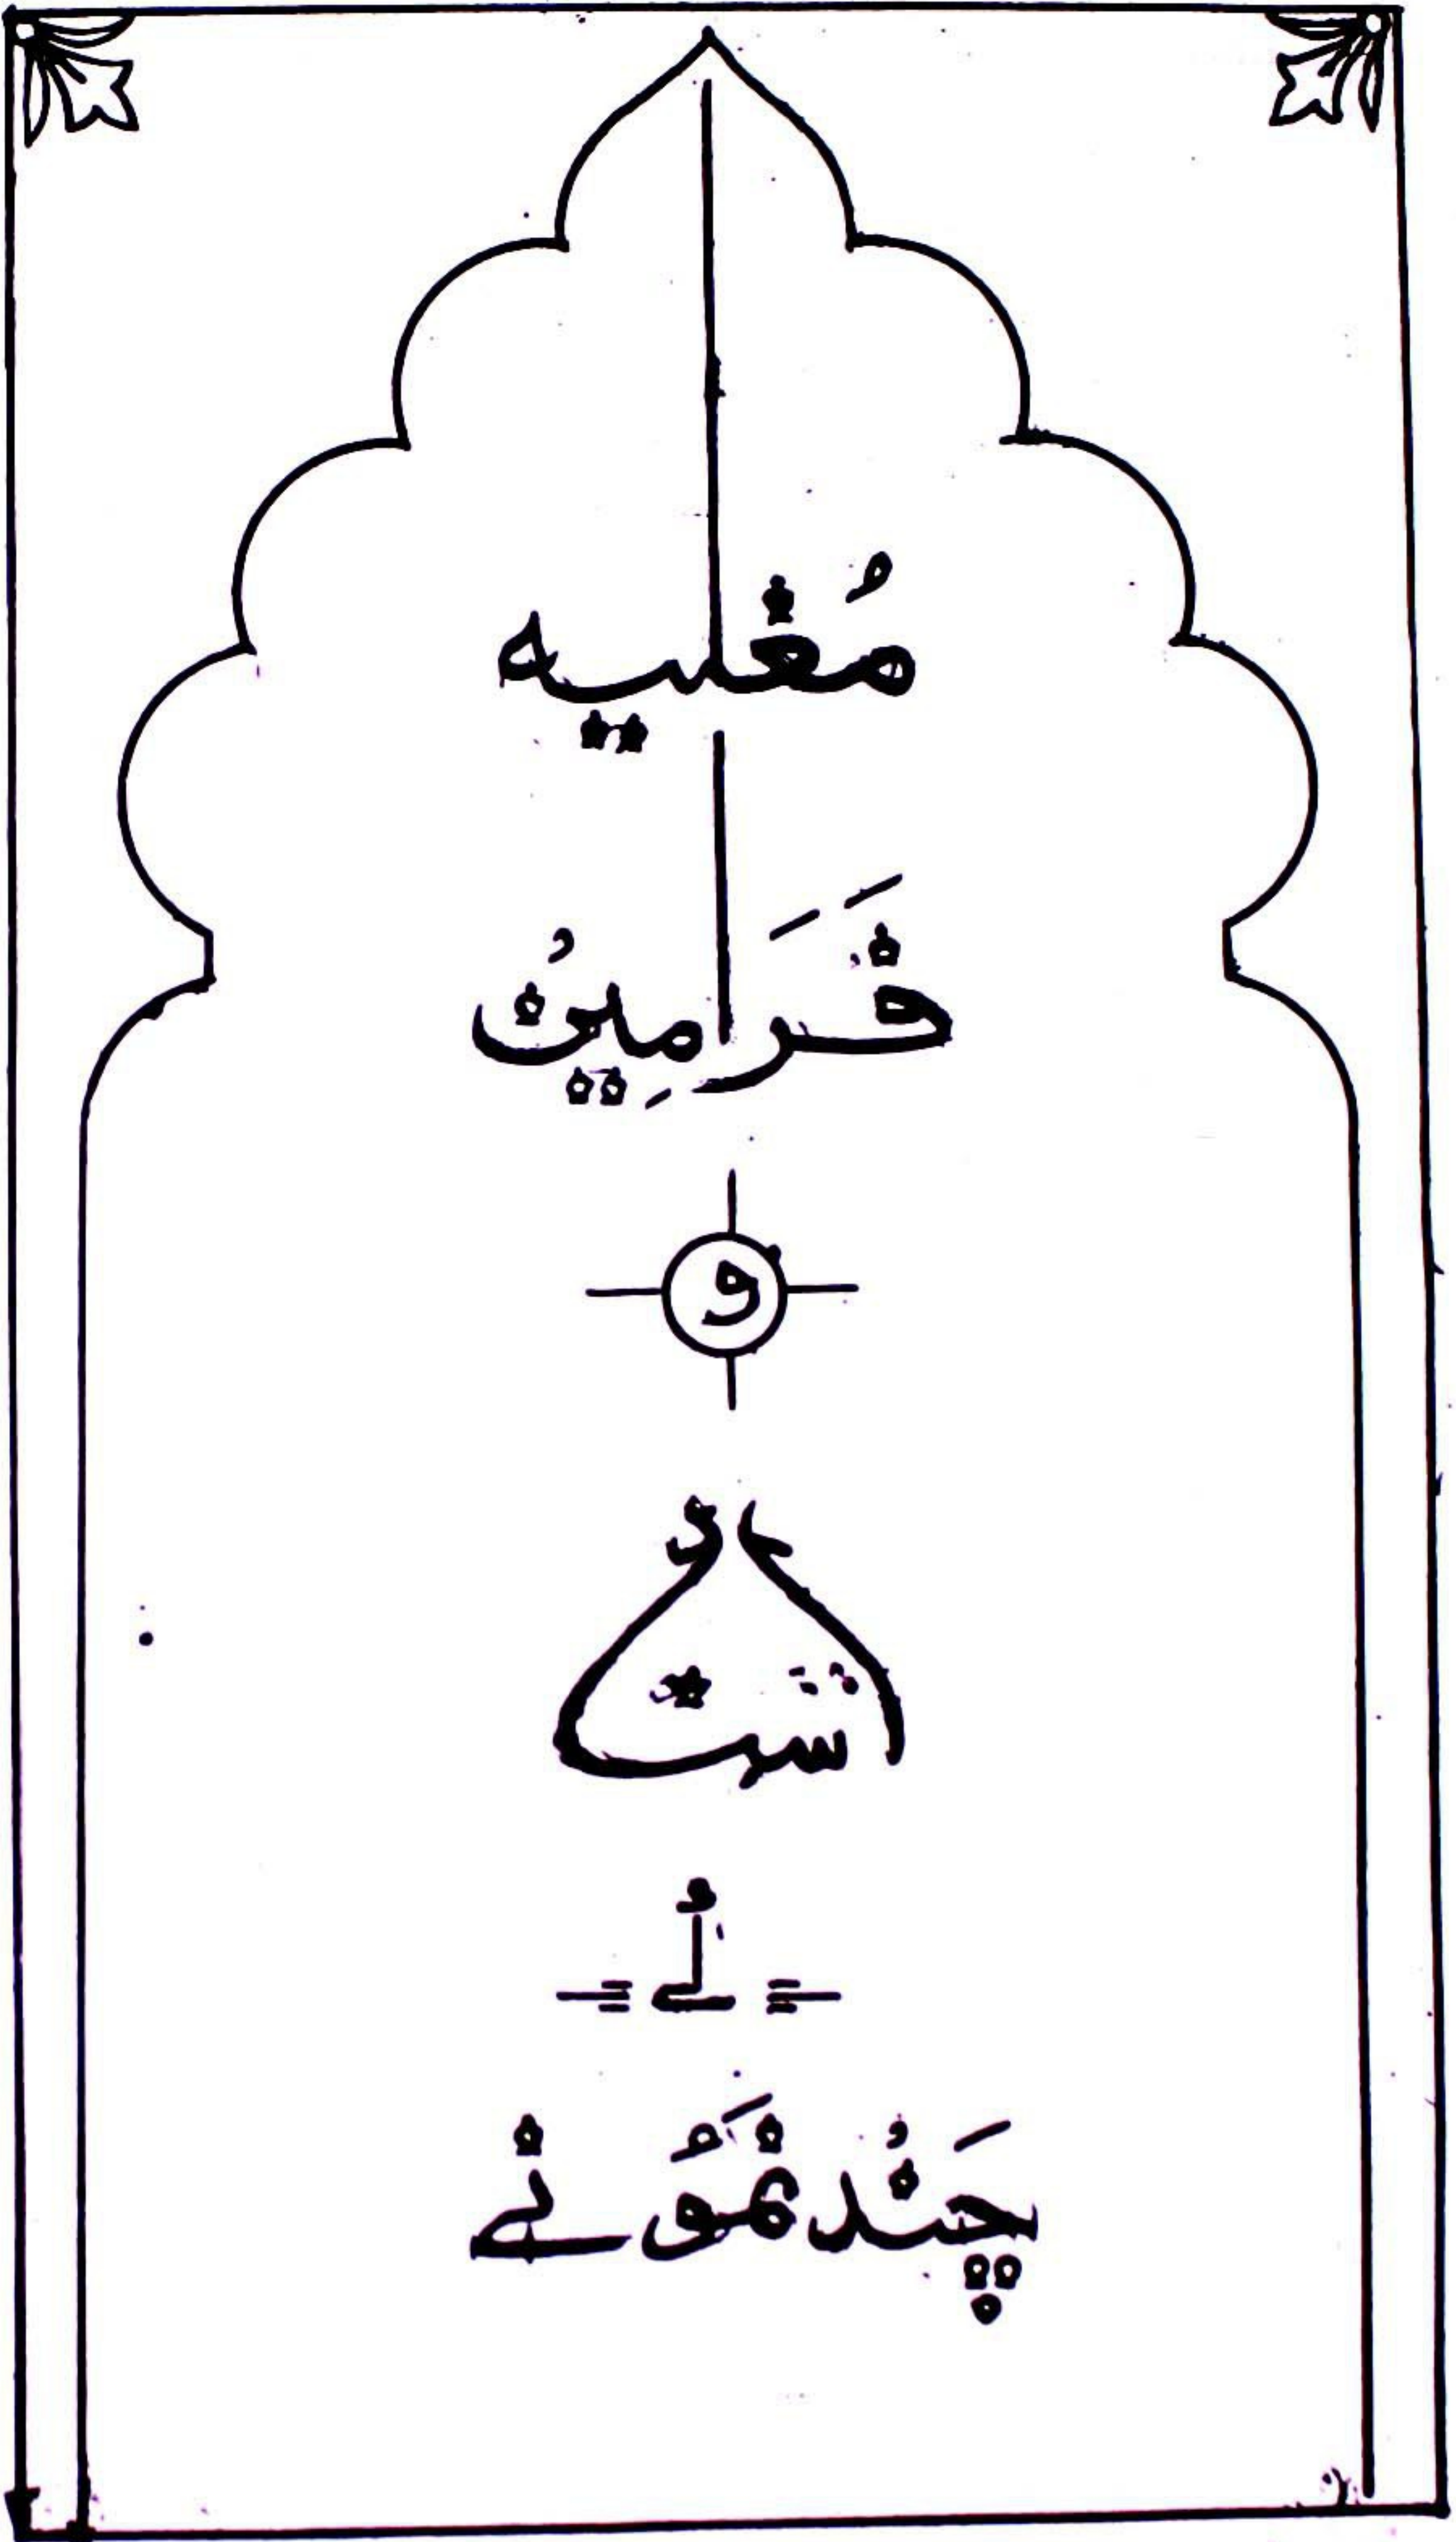 مُغلیہ
فَرَامِینُ
و
کے
چَنُد نَمُونے